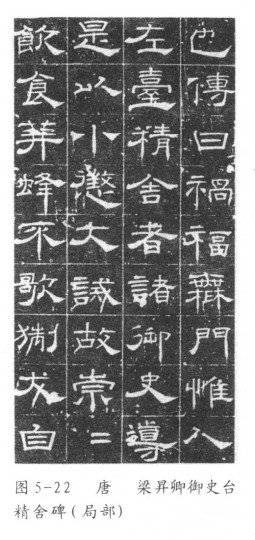 也傳曰禍福無門惟人
左臺精舍者諸御史導
是以小懲大誡故崇〻
飲食荓蜂不歌猘犬自
图5-22 唐 梁昇卿御史台
精舍碑(局部)